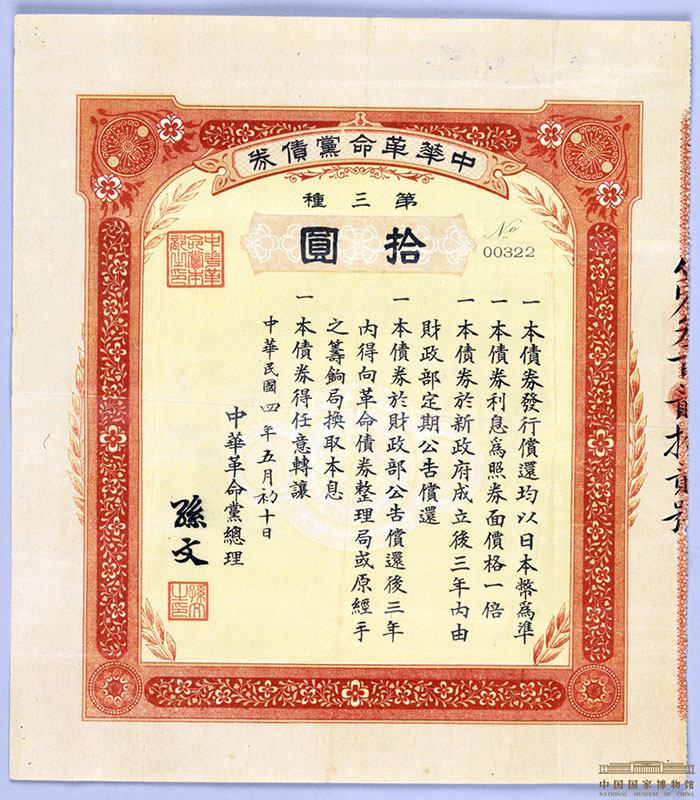 中華革命黨債券
第三種
拾圓
No
00322
一本債券發行償還均以日本幣爲準
一本債券利息爲照券面價格一倍
一本債券於新政府成立後三年內由
財政部定期公告償還
一本債券於財政部公告償還後三年
內得向革命債券整理局或原經手
之籌餉局換取本息
一本債券得任意轉讓
中華民國四年五月初十日
中華革命黨總理
孫文
中華革
命黨本
部之印
孫文
之印
中国国家博物馆
NATIONAL MUSEUM OF CHINA